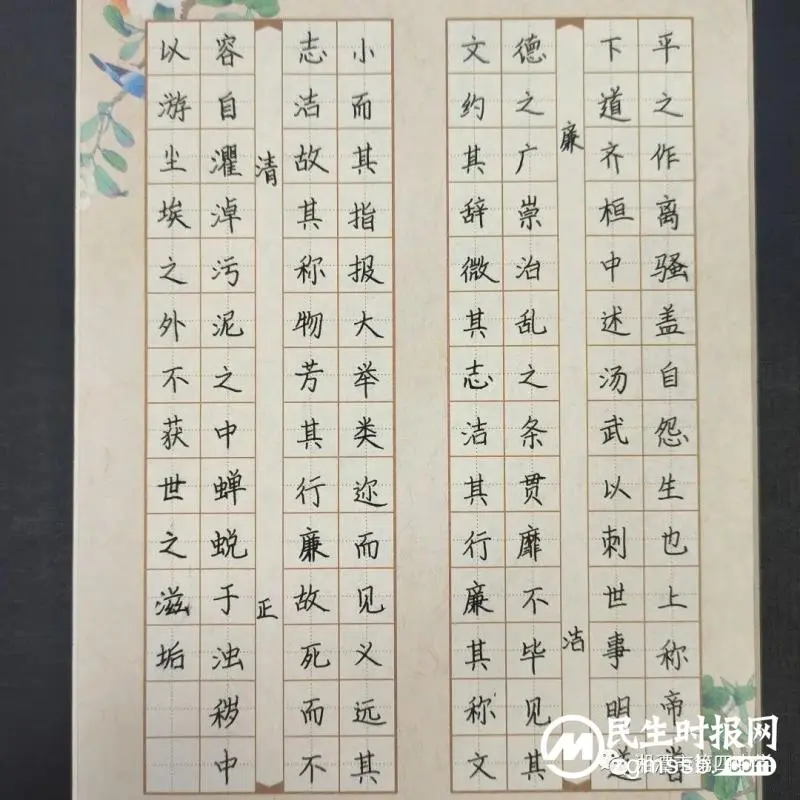 平之作离骚盖自怨生也上称帝
下道齐桓中述汤武以刺世事明道
廉洁
德之广崇治乱之条贯靡不毕见其
文约其辞微其志洁其行廉其称文
小而其指报大举类迩而见义远其
志洁故其称物芳其行廉故死而不
清正
容自濯淖污泥之中蝉蜕于浊秽中
以游尘埃之外不获世之滋垢
民生时报网